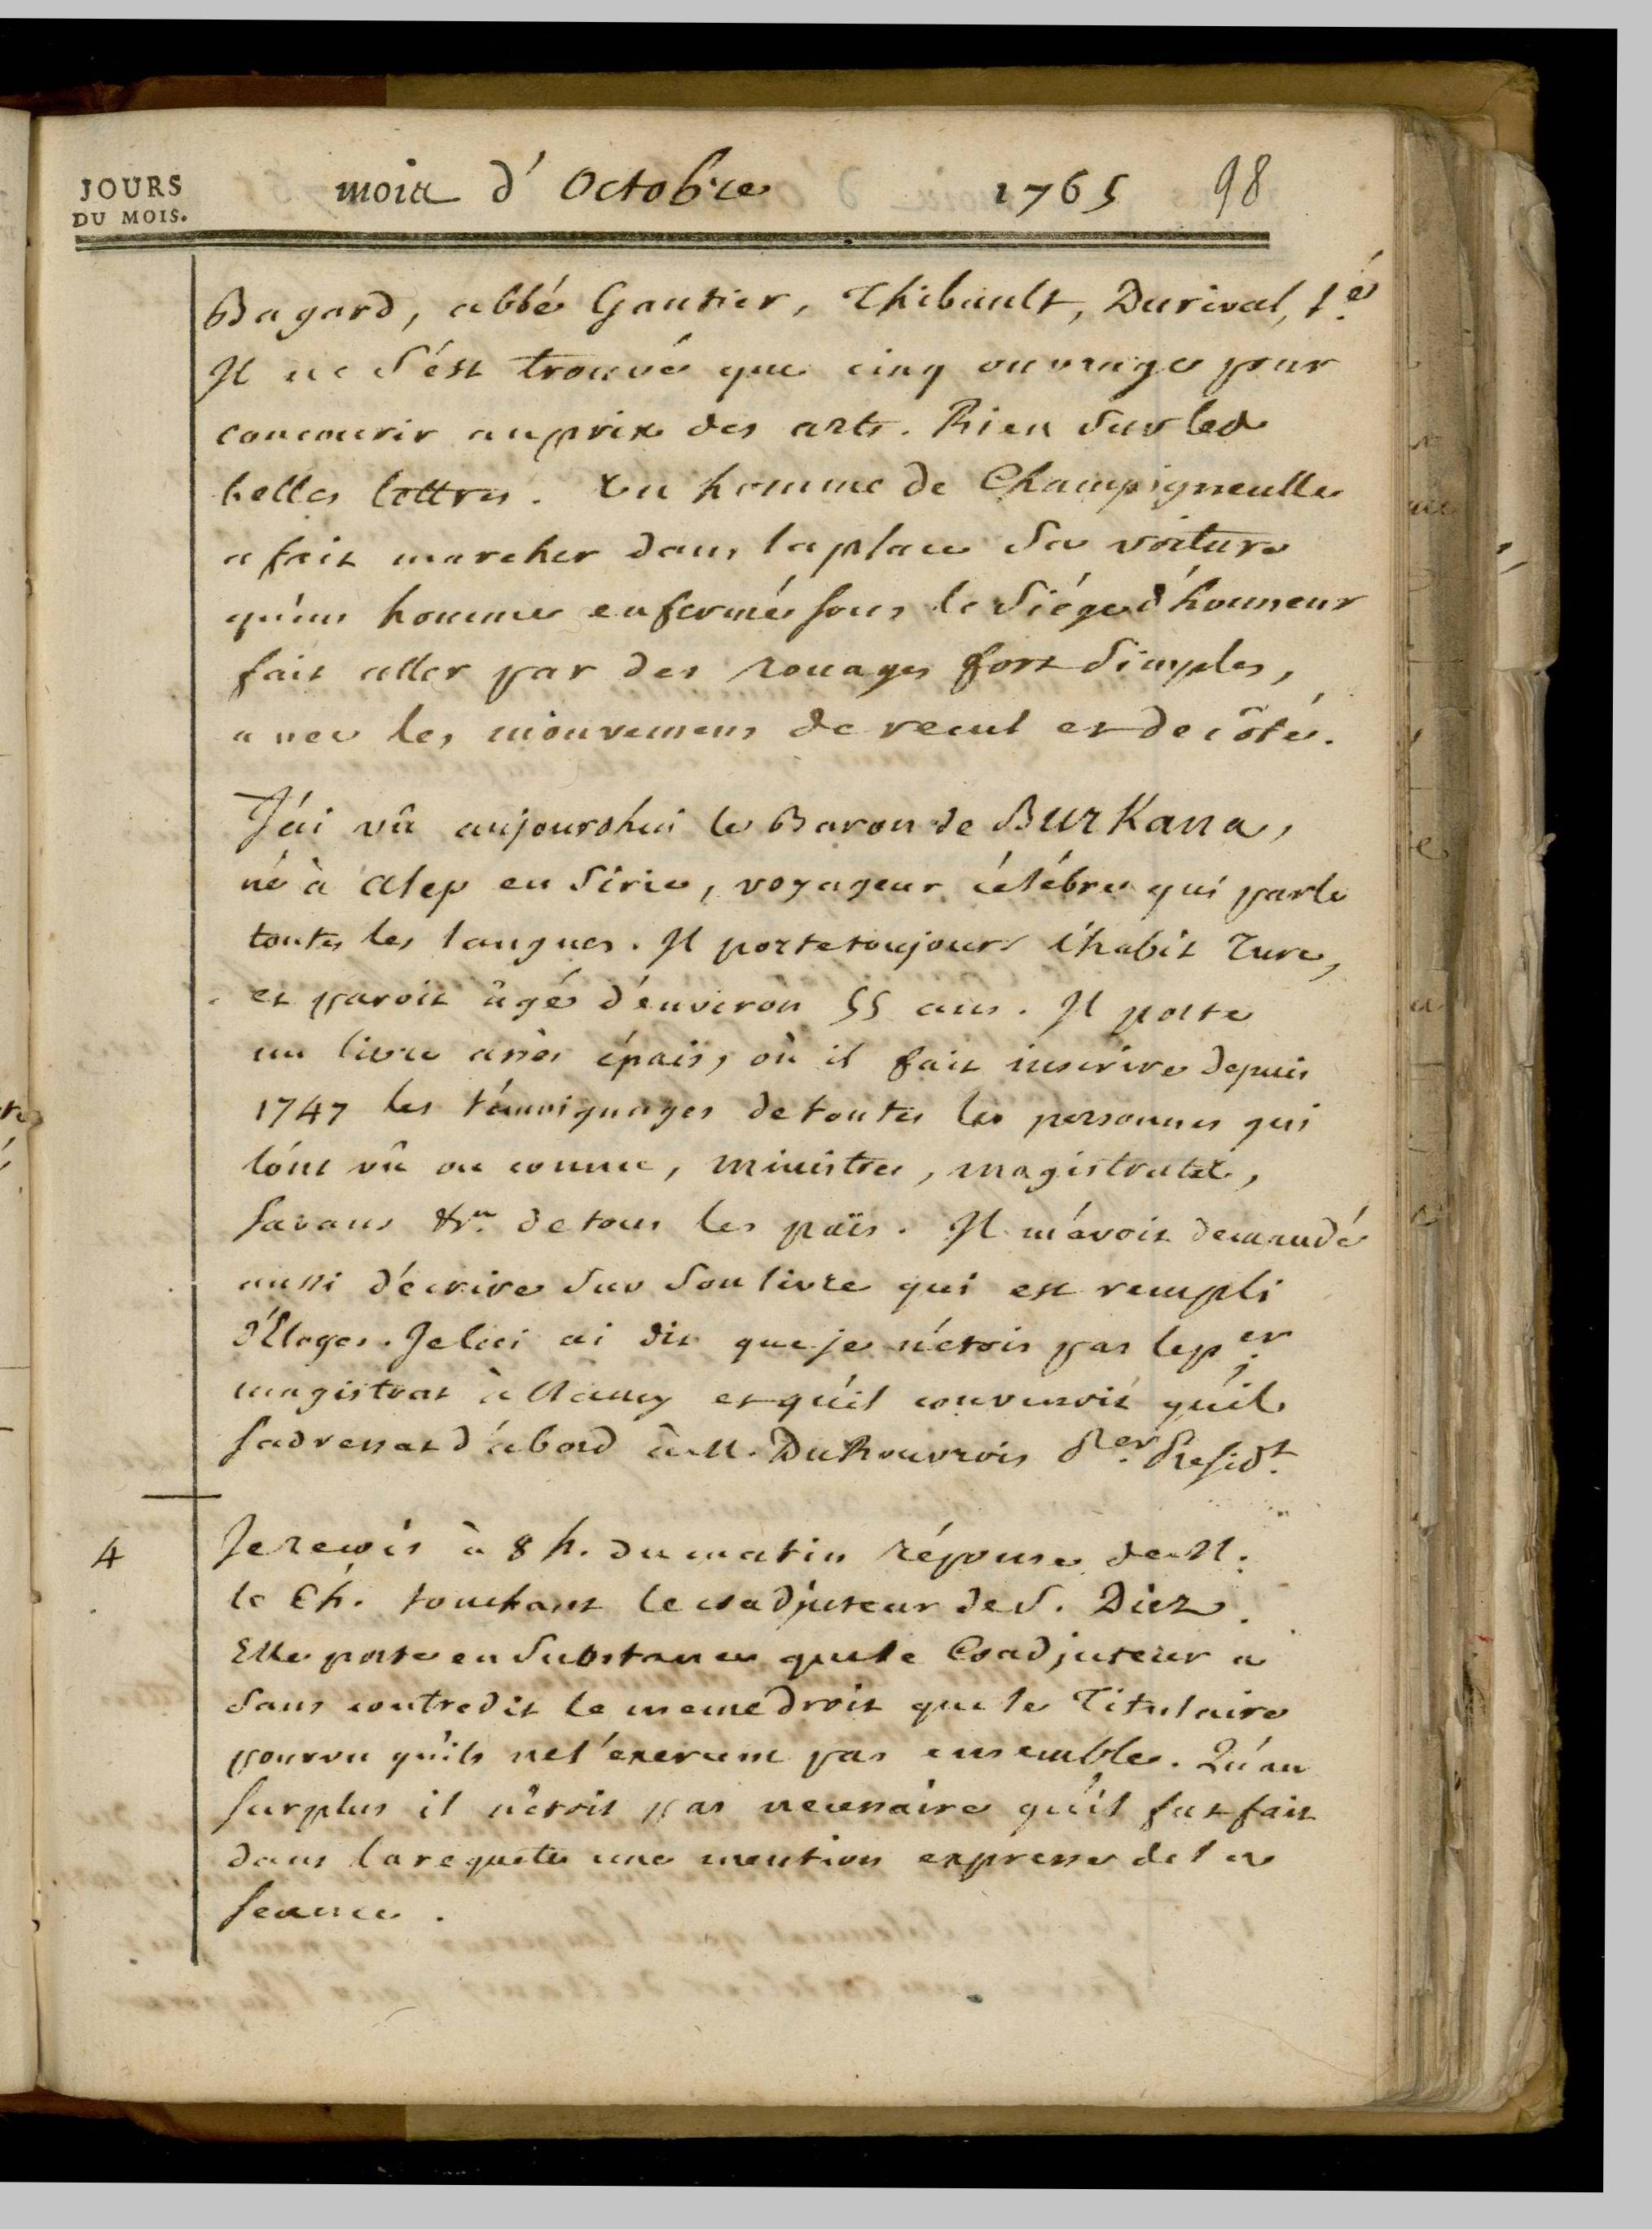 JOURS
DU MOIS.
mois d' Octobre 1765 98
Bagard, abbé Gautier, Thibault, Durival, s.é
Il ne s'est trouvé que cinq ouvrages pour
concourir au prix des arts. Rien sur les
belles lettres. Un homme de Champigneulle
a fait marcher dans la place sa voiture
qu'un homme enfermé sous le siége d'honneur
fait aller par des rouages fort simples,
avec les mouvemens de recul et de côté.
J'ai vû aujourdhui le Baron de Burkana,
né à Alep en Sirie, voyageur célébre qui parle
toutes les langues. Il porte toujours l'habit Turc,
et paroit âgé d'environ 55 ans. Il porte
un livre assés épais, où il fait inscrire depuis
1747 les témoignages de toutes les personnes qui
l'ont vû ou connu, ministres, magistrats,
savans &c.a de tous les païs. Il m'avoit demandé
aussi d'écrire sur son livre qui est rempli
d'Eloges. Je lui ai dit que je n'étois pas le p.er
magistrat à Nancy et qu'il convenoit qu'il
s'adressat d'abord à M. Du Rouvrois P.er Presid.t
4
Je reçois à 8 h. du matin réponse de M.
le Ch. touchant le coadjuteur de S. Diez.
Elle porte en substance que le Coadjuteur a
sans contredit le meme droit que le Titulaire
pourvu qu'ils ne l'exercent pas ensemble. Qu'au
surplus il n'étoit pas necessaire qu'il fut fait
dans la requête une mention expresse de la
seance.